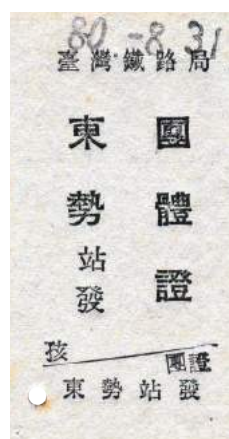 80-8.31
臺灣鐵路局
團體證
東勢站發
孩
團證
東勢站發